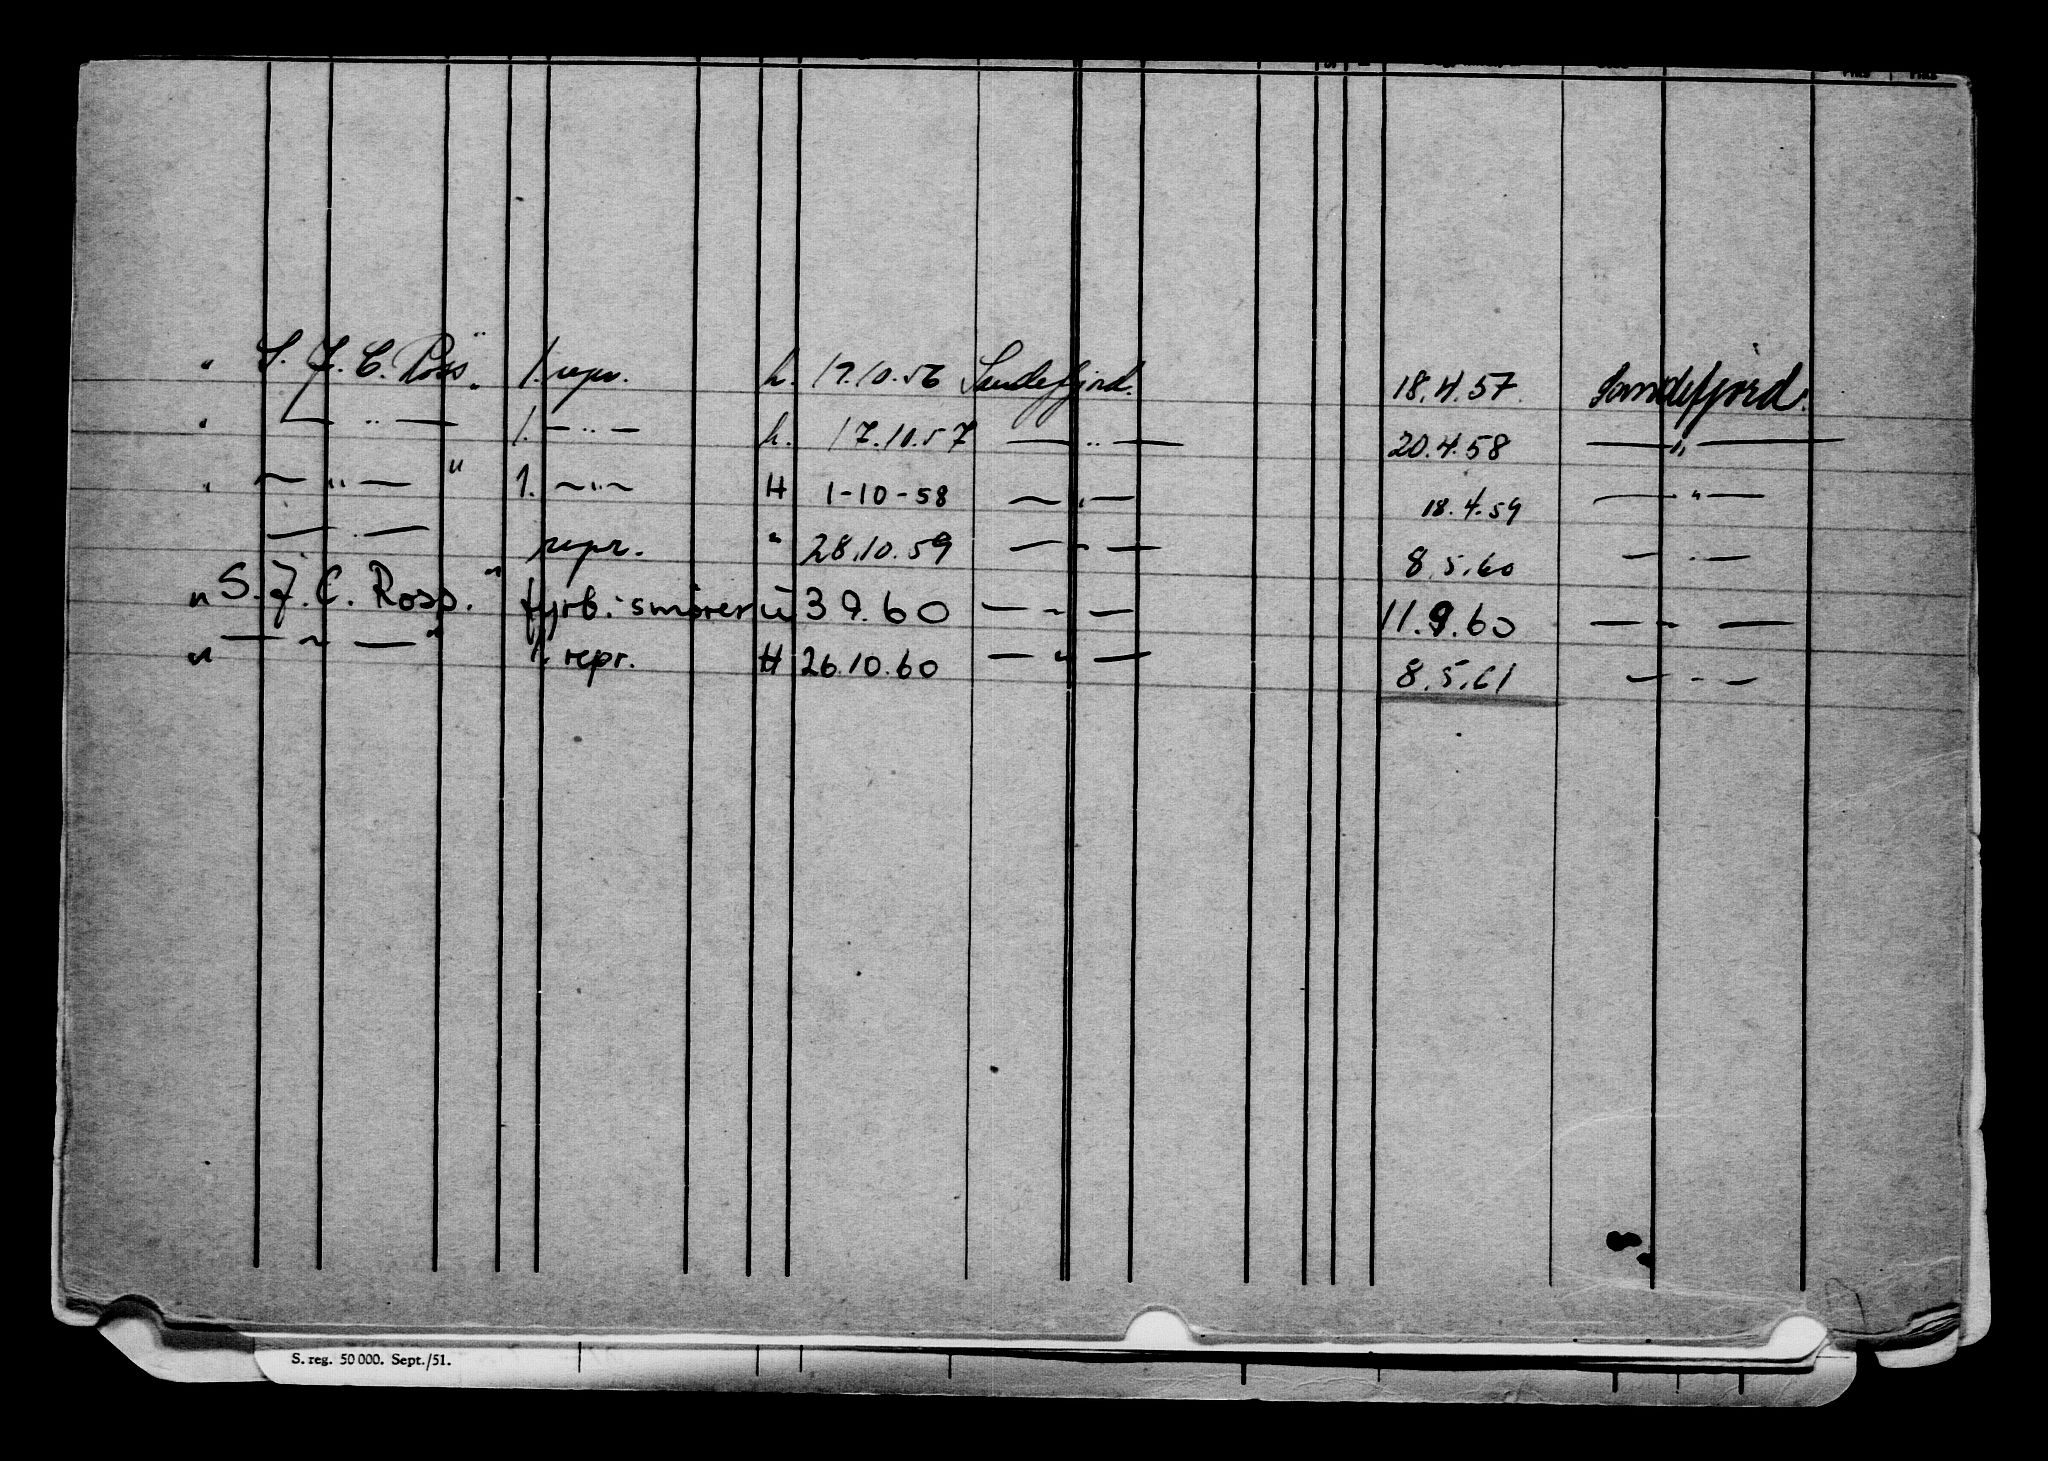 " S. J. C. Ross". 1. repr. h. 17.10.56 Sandefjord. 18.4.57. Sandefjord.
" — " — 1. — " — h. 17.10.57 — " — 20.4.58 — " —
" — " — " 1. — " — H 1-10-58 — " — 18.4.59 — " —
— " — repr. " 28.10.59 — " — 8.5.60 — " —
" S. J. C. Ross." fyrb. smører u 3 9.60 — " — 11.9.60 — " —
" — " — " 1. repr. H 26.10.60 — " — 8.5.61 — " —
S. reg. 50 000. Sept./51.